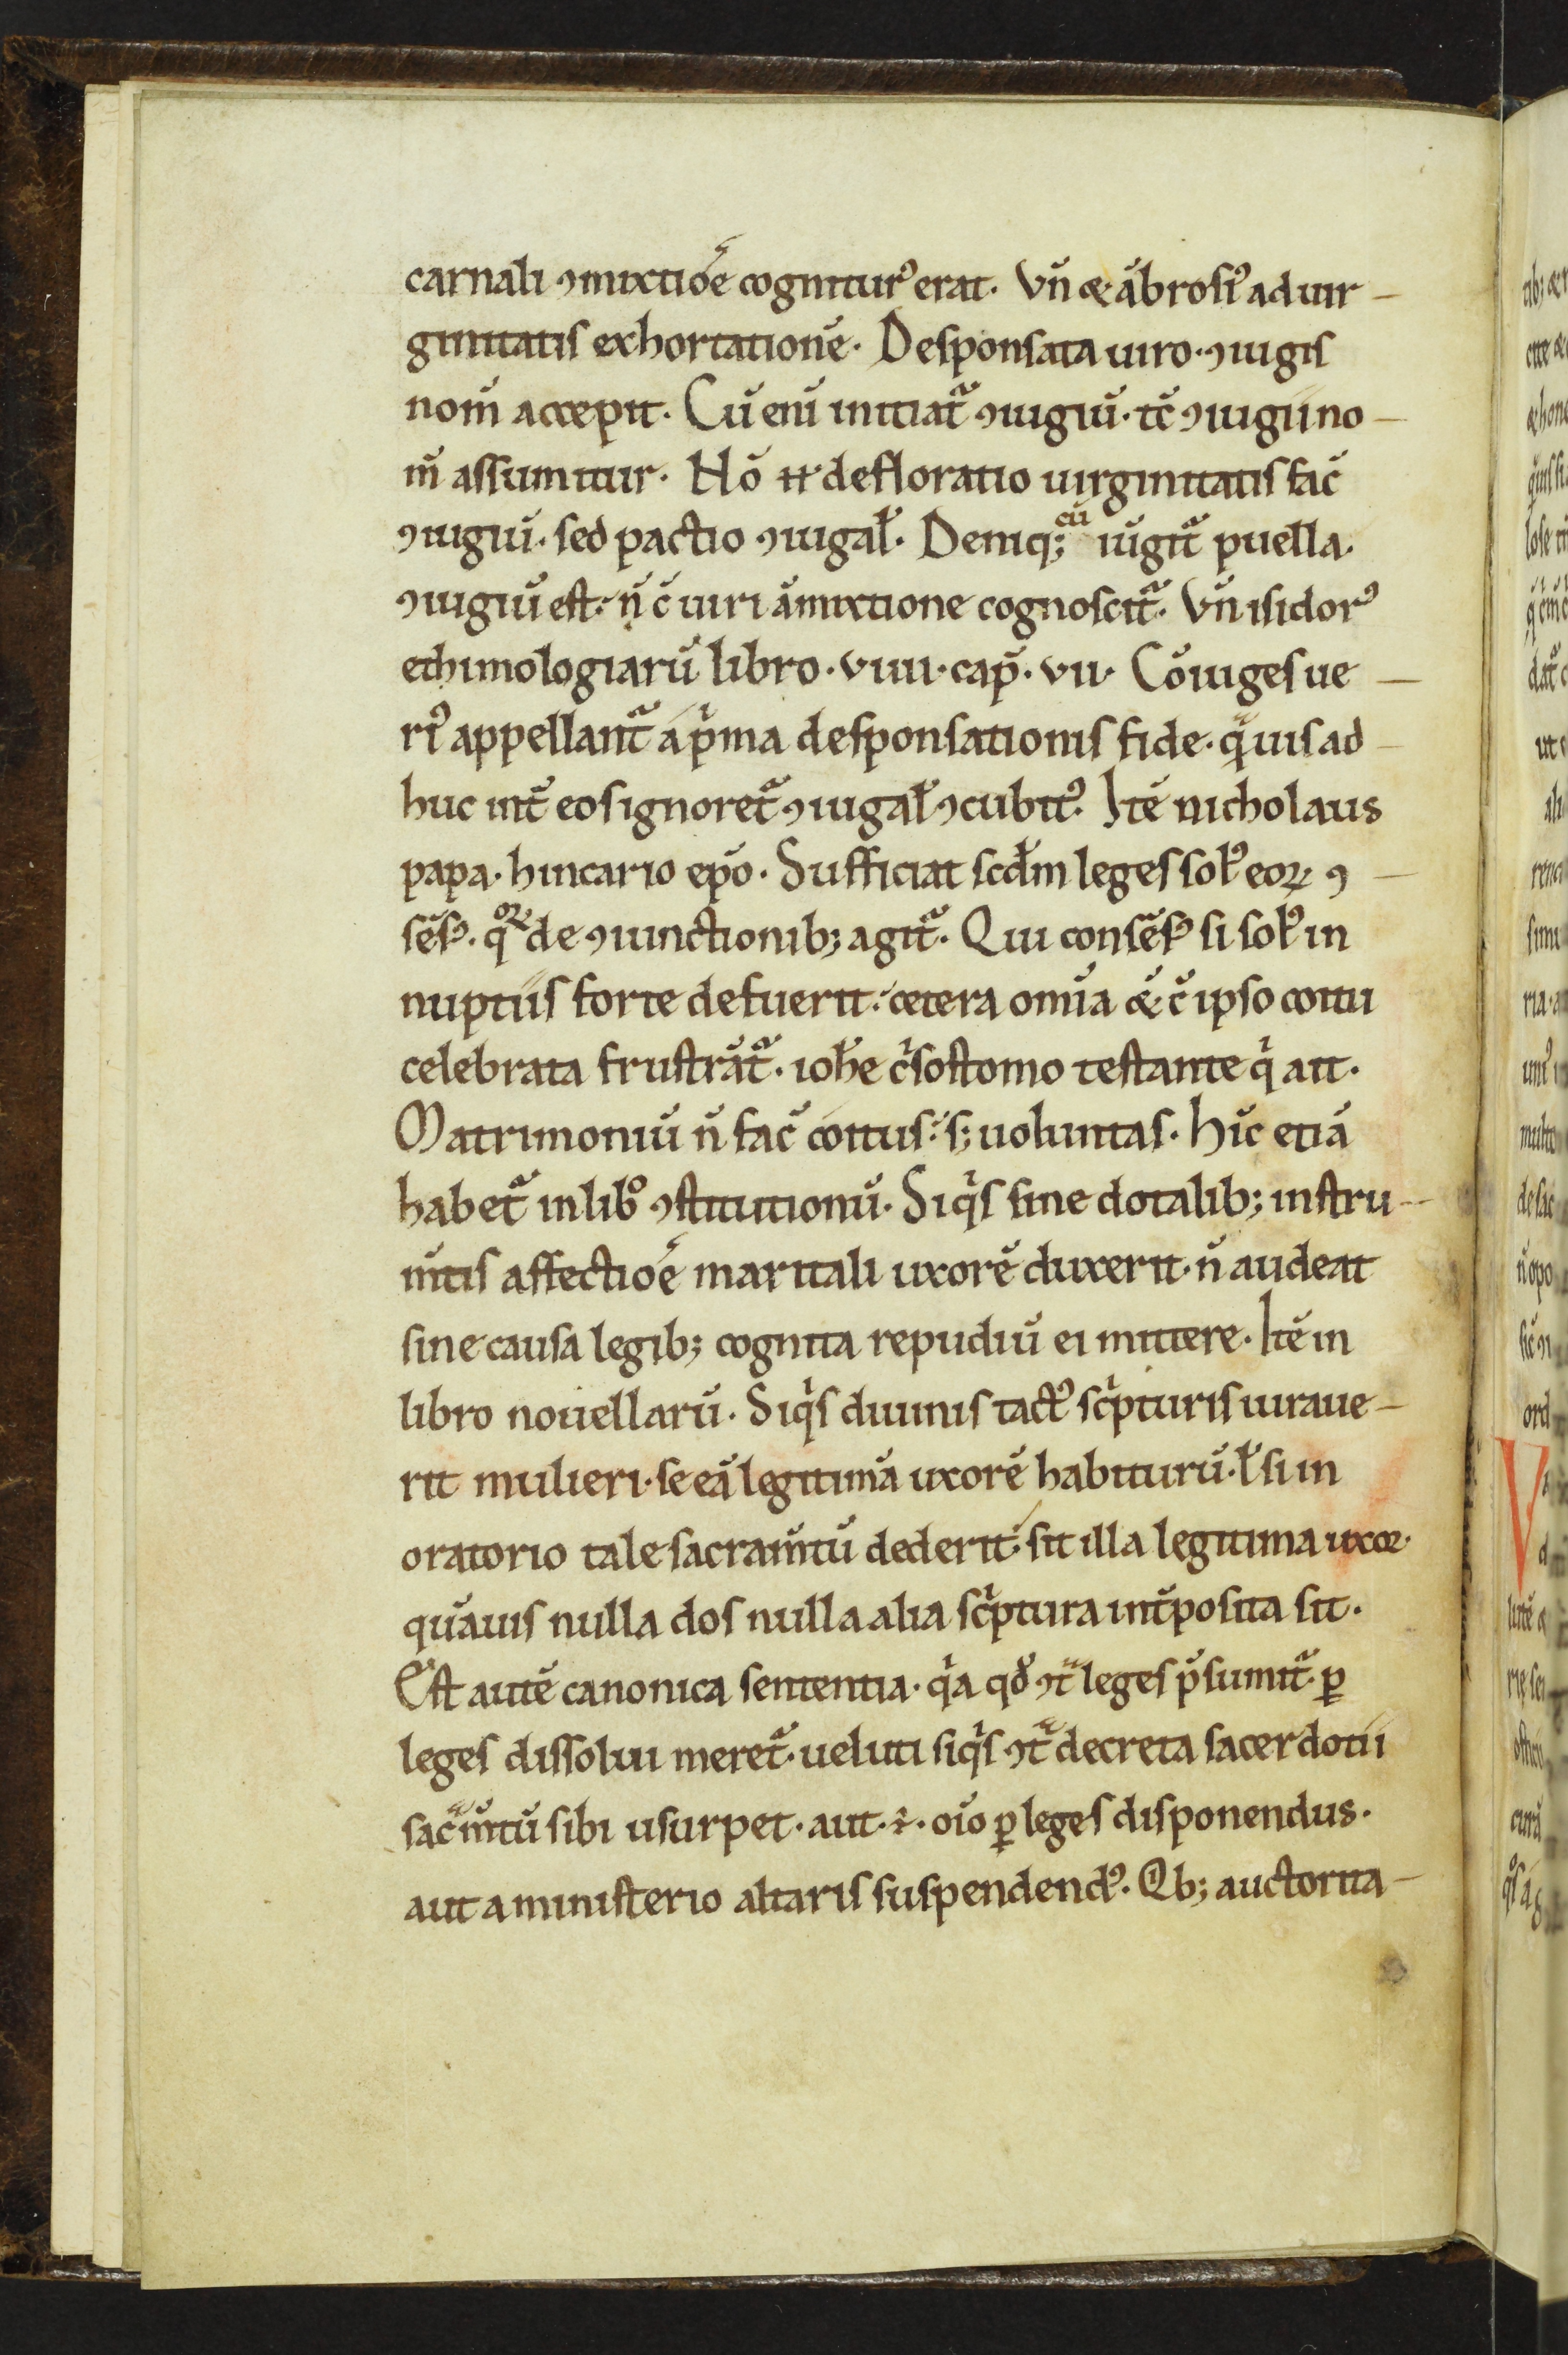 carnali ꝯmixtiōe cogniturꝰ erat. Vn̄ & ābrosiꝰ ad uir-
ginitatis exhortationē. Desponsata uiro. ꝯiugis
nom̄ accepit. Cū enī initiatᷓ ꝯiugiū. tc̄ ꝯiugii no-
m̄ assumitur. Nō .n. defloratio uirginitatis fac̄
ꝯiugiū. sed pactio ꝯiugal̄. Deniq; cū iūgitᷓ puella.
ꝯiugiū est. n̄ c̄ uiri āmixtione cognoscitᷓ. Vn̄ isidorꝰ
ethimologiarū libro. viiii. cap̄. vii. Cōiuges ue-
riꝰ appellantᷓ a pͥma desponsationis fide. qͣuis ad-
huc int̄ eos ignoretᷓ ꝯiugal̄ ꝯcubitꝰ. Itē nicholaus
papa. hincario ep̄o. Sufficiat scd̄m leges solꝰ eoꝝ ꝯ-
sēsꝰ. qͦꝝ de ꝯiunctionib; agitᷓ. Qui consēsꝰ si solꝰ in
nuptiis forte defuerit. cetera omīa &̄ c̄ ipso coitu
celebrata frustrātᷓ. ioh̄e cͥsostomo testante qͥ ait.
Matrimoniū n̄ fac̄ coitus. s; uoluntas. Hīc etiā
habetᷓ in libͦ ꝯstitutionū. Siqͥs sine dotalib; instru-
m̄tis affectiōe maritali uxorē duxerit. n̄ audeat
sine causa legib; cognita repudiū ei mittere. Itē in
libro nouellarū. Siqͥs diuinis tactꝰ scͥpturis iuraue-
rit mulieri. se eā legitimā uxorē habiturū. ł si in
oratorio tale sacram̄tū dederit. sit illa legitima uxoꝛ.
quāuis nulla dos nulla alia scͥptura int̄posita sit.
Est autē canonica sententia. qͥa qd̄ ꝯtͣ leges p̄sumitᷓ. ꝑ
leges dissolui meretᷓ. ueluti siqͥs ꝯtͣ decreta sacerdotii
sacͣm̄tū sibi usurpet. aut .ē. oīo ꝑ leges disponendus.
aut a ministerio altaris suspendendꝰ. Qͥb; auctorita-